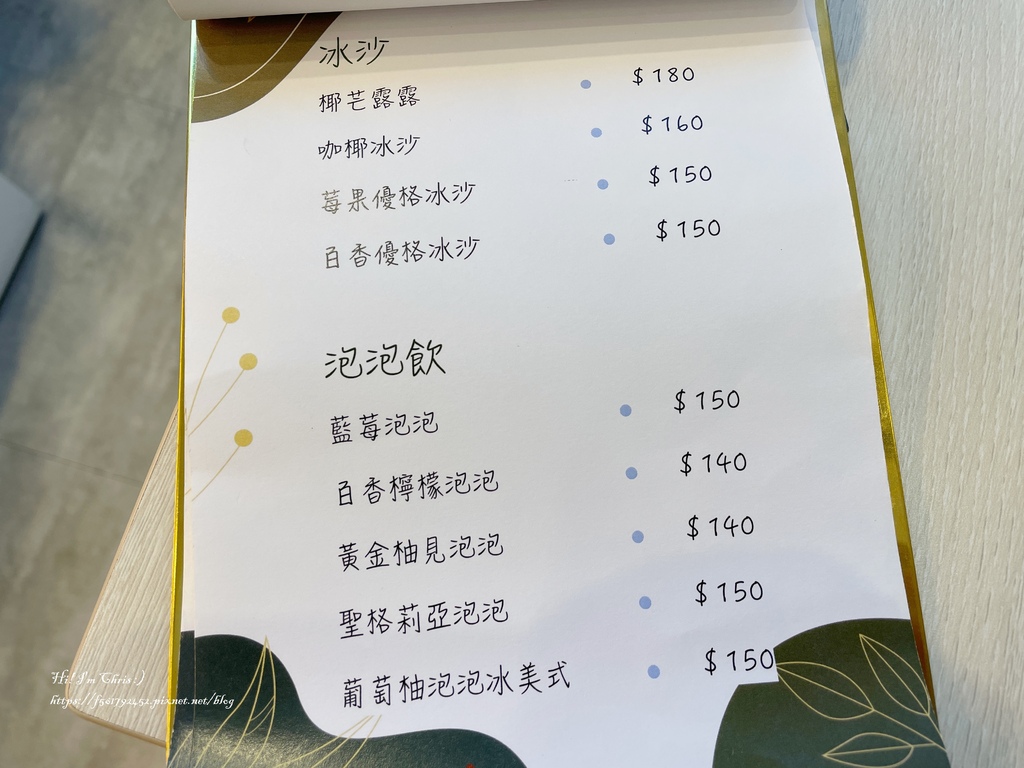 冰沙
椰芒露露 $180
咖椰冰沙 $160
莓果優格冰沙 $150
百香優格冰沙 $150
泡泡飲
藍莓泡泡 $150
百香檸檬泡泡 $140
黃金柚見泡泡 $140
聖格莉亞泡泡 $150
葡萄柚泡泡冰美式 $150
Hi! I'm Chris :)